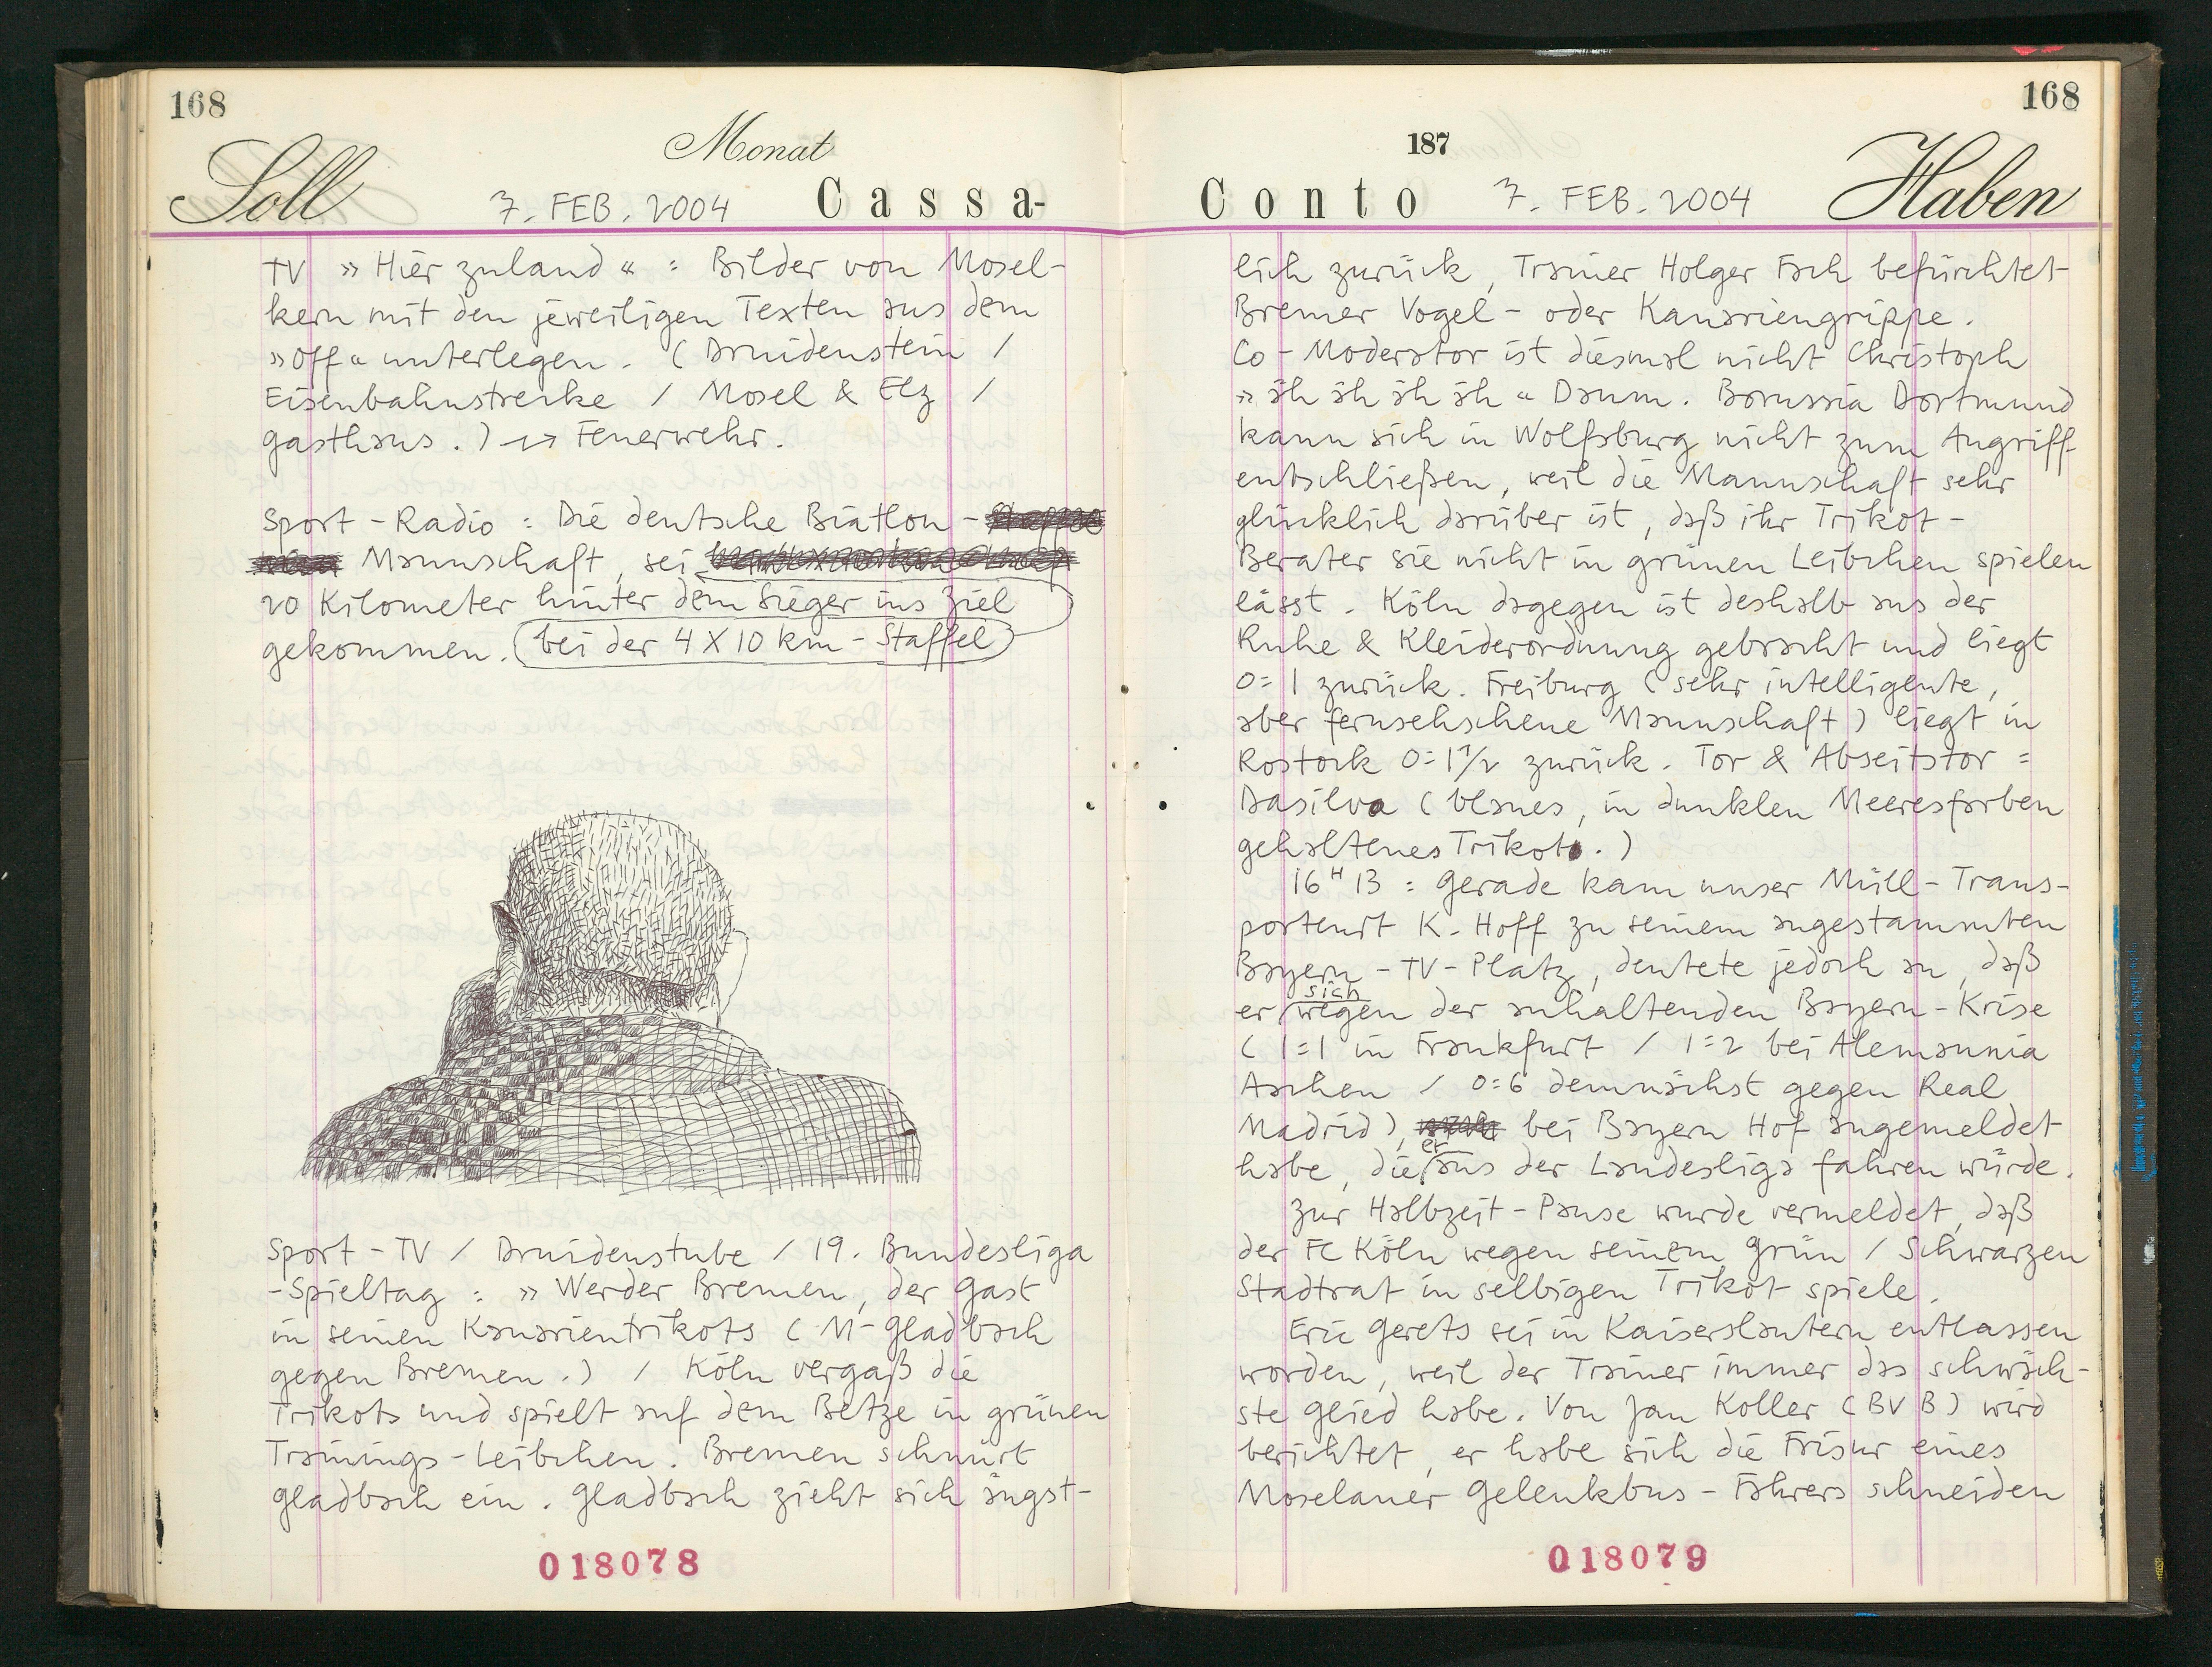 168
Monat
Soll
7. FEB. 2004
Cassa-
TV » Hier zuland « : Bilder von Mosel-
kern mit den jeweiligen Texten aus dem
»Off« unterlegen. (Druidenstein /
Eisenbahnstrecke / Mosel & Elz /
Gasthaus.) → Feuerwehr.
Sport - Radio : Die deutsche Biatlon -
Mannschaft, sei
20 Kilometer hinter dem Sieger ins Ziel
gekommen. bei der 4 X 10 km - Staffel
Sport - TV / Druidenstube / 19. Bundesliga
- Spieltag : » Werder Bremen, der Gast
in seinen Kanarientrikots (M-Gladbach
gegen Bremen.) / Köln vergaß die
Trikots und spielt auf dem Betze in grünen
Trainings - Leibchen. Bremen schnürt
Gladbach ein. Gladbach zieht sich ängst-
018078
168
187
Conto
7. FEB. 2004
Haben
lich zurück, Trainer Holger Fach befürchtet
Bremer Vogel - oder Kanariengrippe.
Co - Moderator ist diesmal nicht Christoph
» äh äh äh äh « Daum. Borussia Dortmund
kann sich in Wolfsburg nicht zum Angriff
entschließen, weil die Mannschaft sehr
glücklich darüber ist, daß ihr Trikot -
Berater sie nicht in grünen Leibchen spielen
lässt. Köln dagegen ist deshalb aus der
Ruhe & Kleiderordnung gebracht und liegt
0:1 zurück. Freiburg (sehr intelligente,
aber fernsehschene Mannschaft) liegt in
Rostock 0:1½ zurück. Tor & Abseitstor :
Dasilva (blaues, in dunklen Meeresfarben
gehaltenes Trikot.)
16 H 13 : Gerade kam unser Müll - Trans-
porteurt K. Hoff zu seinem angestammten
Bayern - TV - Platz, deutete jedoch an, daß
er sich wegen der anhaltenden Bayern - Krise
(1:1 in Frankfurt / 1:2 bei Alemannia
Aachen / 0:6 demnächst gegen Real
Madrid), bei Bayern Hof angemeldet
habe, die er aus der Landesliga fahren würde.
Zur Halbzeit - Pause wurde vermeldet, daß
der FC Köln wegen seinem Grün / Schwarzen
Stadtrat in selbigen Trikot spiele.
Eric Gerets sei in Kaiserslautern entlassen
worden, weil der Trainer immer das schwäch-
ste Glied habe. Von Jan Koller (BVB) wird
berichtet, er habe sich die Frisur eines
Moselaner Gelenkbus - Fahrers schneiden
018079